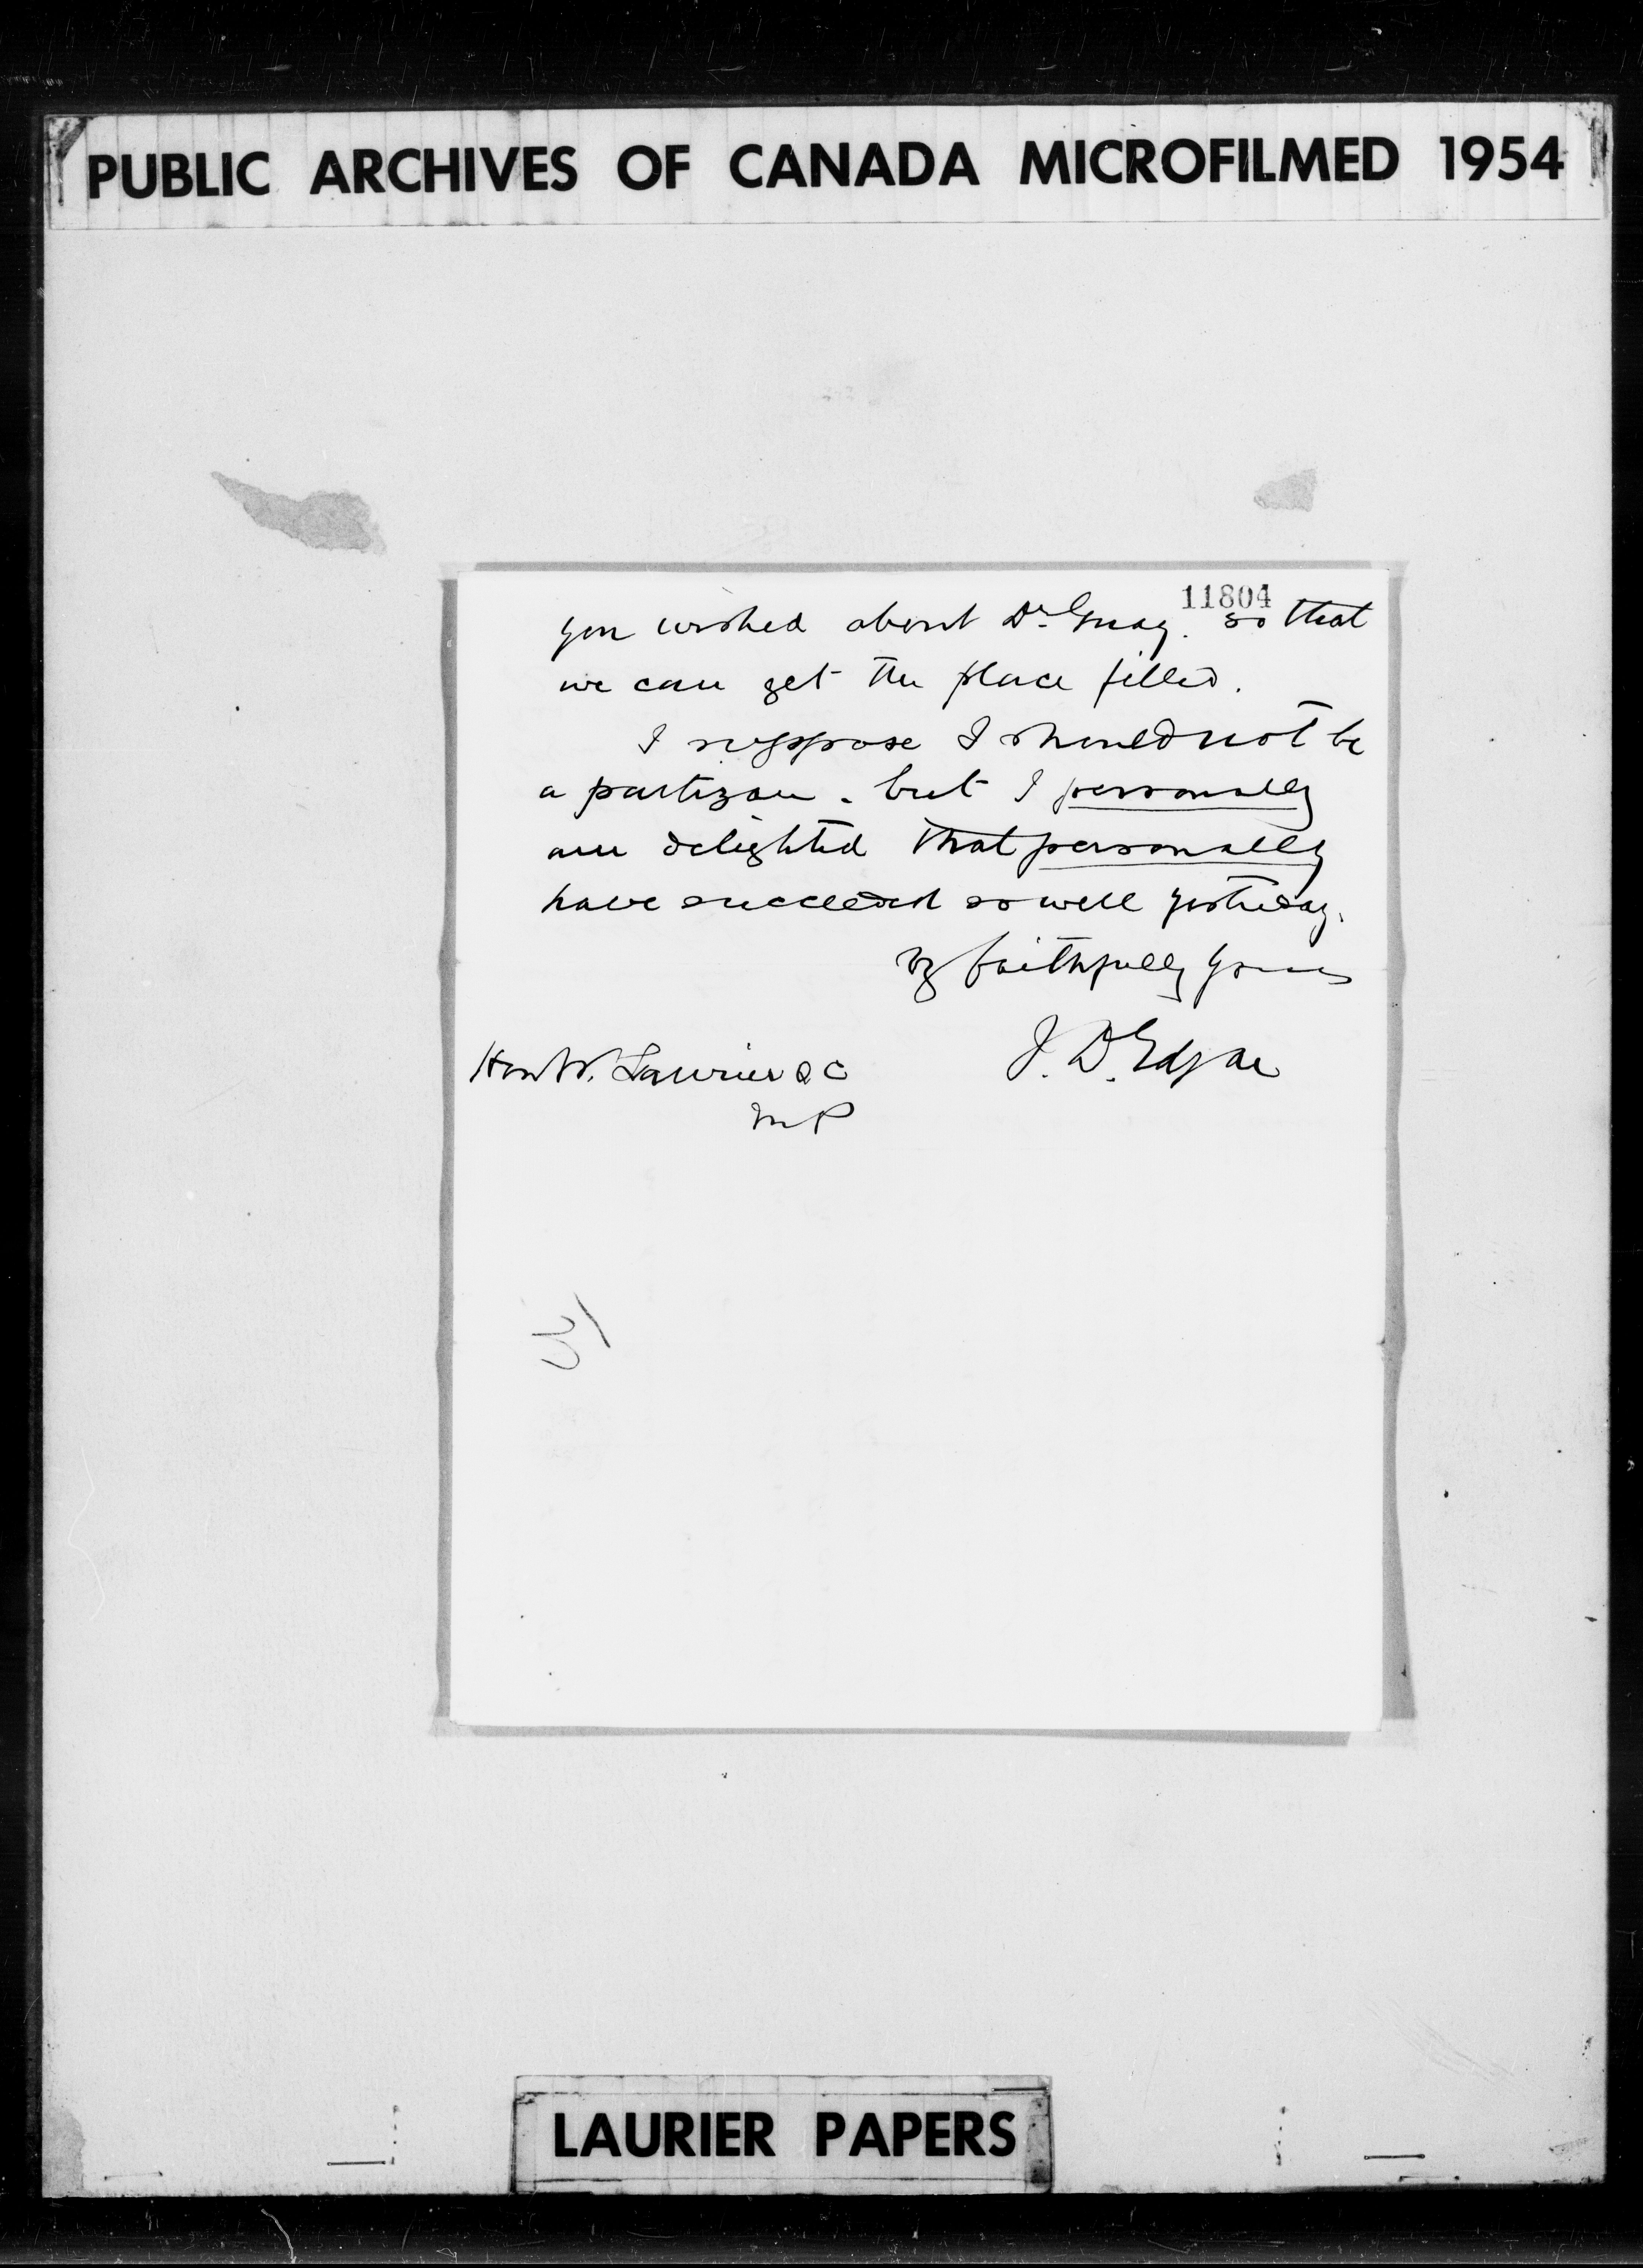 PUBLIC ARCHIVES OF CANADA MICROFILMED 1954
11804
you wished about Dr Guay. so that
we can get the place filled.
I suppose I should not be
a partizan - but I personally
am delighted that personally
have succeeded so well yesterday.
Vy faithfully yours
J. D. Edgar
Hon W. Laurier QC
MP
LAURIER PAPERS